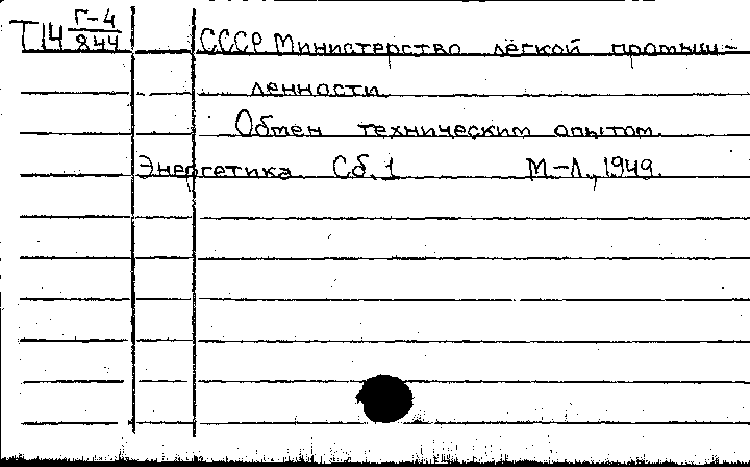 Т14 Г-4
844
СССР Министерство лёгкой промыш-
ленности
Обмен техническим опытом.
Энергетика. Сб. 1 М.-Л., 1949.